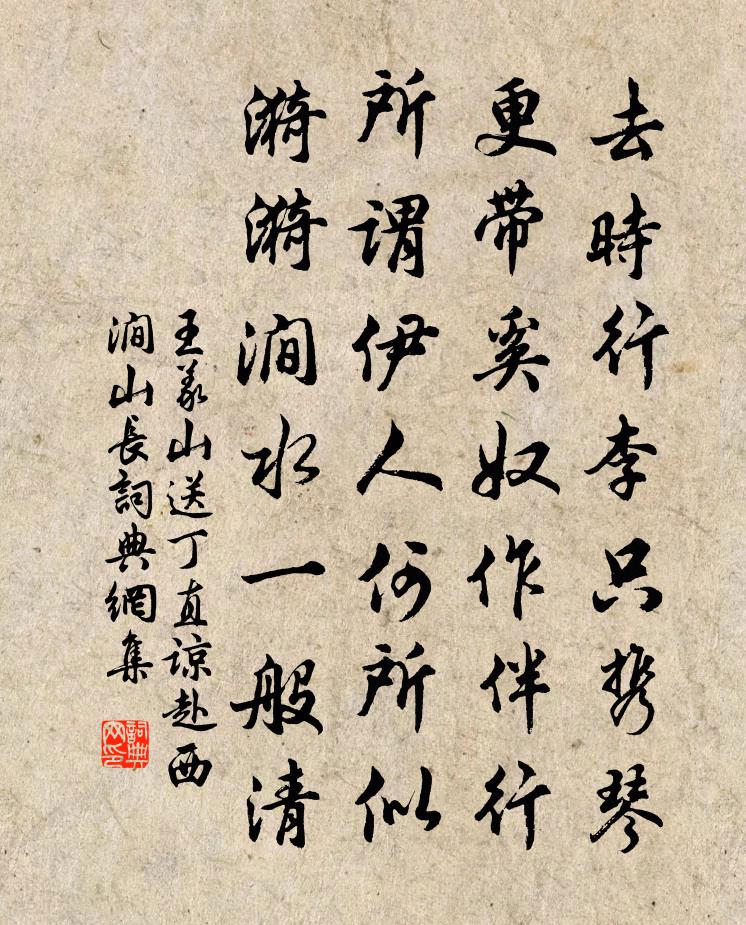 去時行李只携琴
更帶奚奴作伴行
所謂伊人何所似
漪漪澗水一般清
王義山送丁直諒赴西
澗山長詞典網集
詞典網印